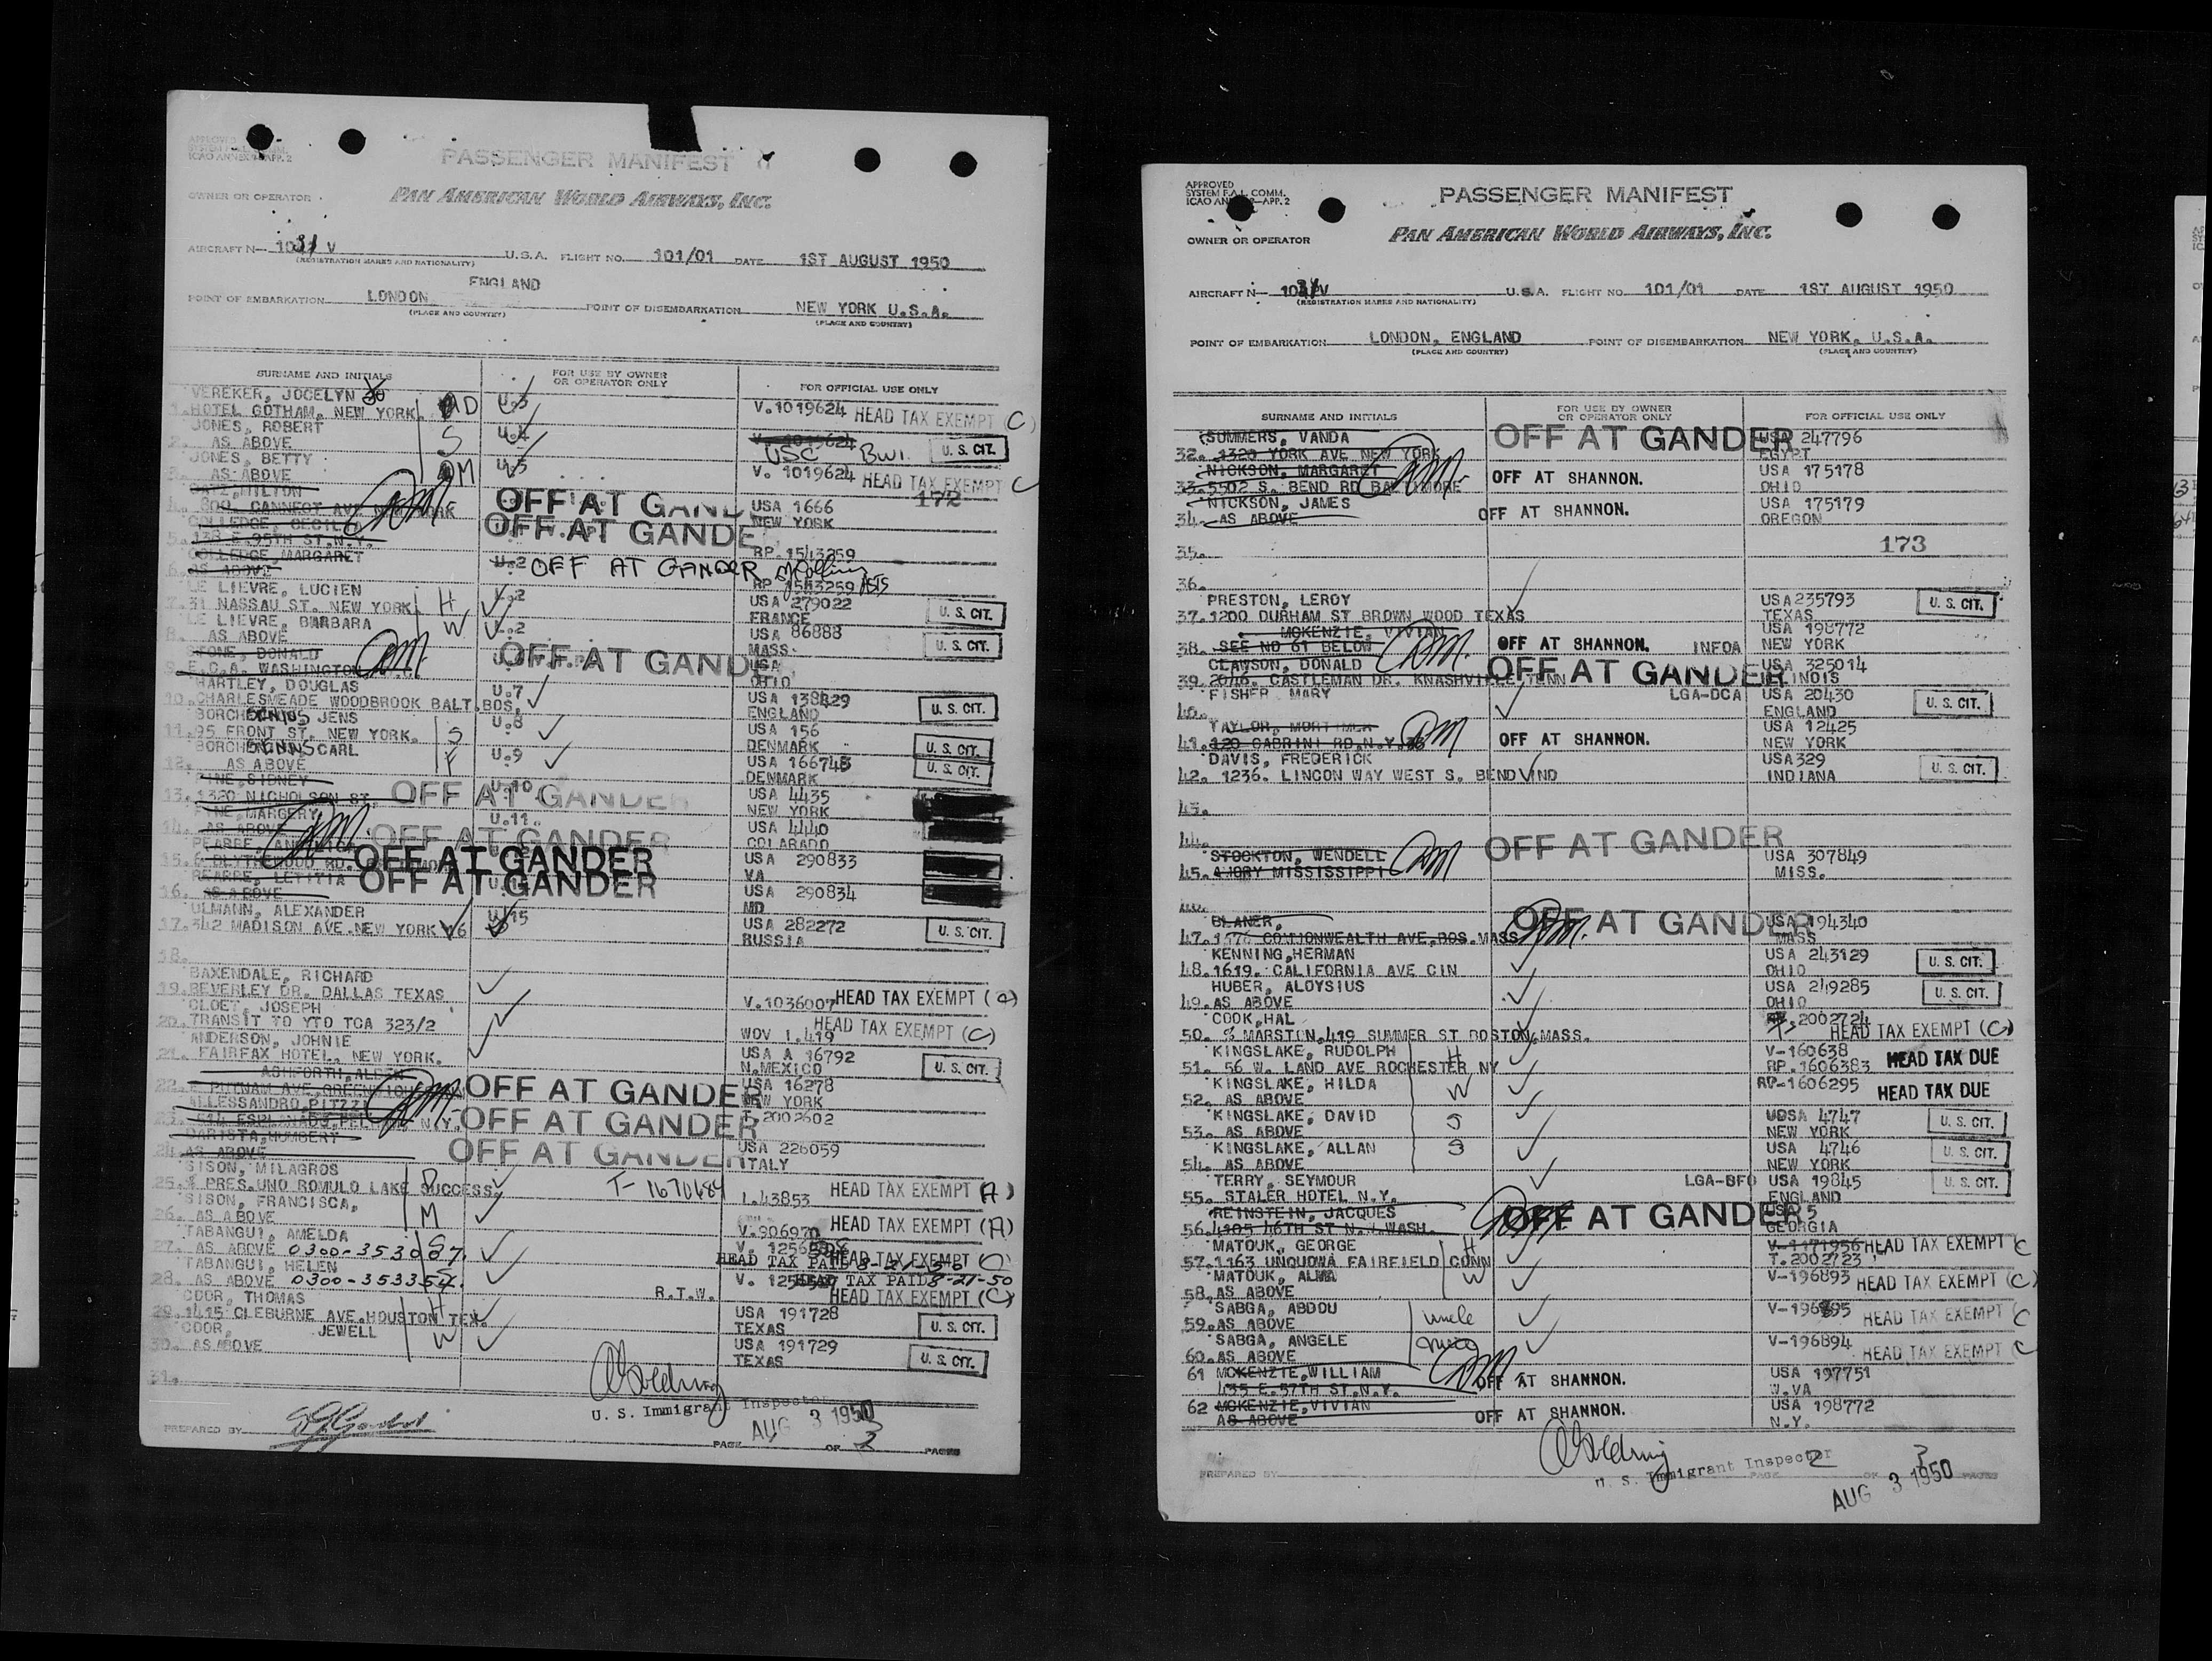 PASSENGER MANIFEST
OWNER OR OPERATOR
PAN AMERICAN WORLD AIRWAYS, INC.
AIRCRAFT N— V U.S.A. FLIGHT NO. 101/01 DATE 1ST AUGUST 1950
(REGISTRATION MARKS AND NATIONALITY)
ENGLAND
POINT OF EMBARKATION LONDON POINT OF DISEMBARKATION NEW YORK U.S.A.
(PLACE AND COUNTRY) (PLACE AND COUNTRY)
SURNAME AND INITIALS FOR USE BY OWNER OR OPERATOR ONLY FOR OFFICIAL USE ONLY
VEREKER, JOCELYN
1. HOTEL GOTHAM, NEW YORK U.3 V.1019624 HEAD TAX EXEMPT (C)
JONES, ROBERT
2. AS ABOVE S U.4 V. 1019624 USC BWI. U. S. CIT.
JONES, BETTY
3. AS ABOVE M U.5 V. 1019624 HEAD TAX EXEMPT C
172
MILTON
4. 800. CANNECT AVE NEW YORK OFF AT GAND USA 1666
NEW YORK
COLLEDGE, CECILIA OFF AT GANDE
5. 138 E.95TH ST.N.Y. RP. 1543259
COLLEDGE, MARGARET
6. AS ABOVE U.2 OFF AT GANDER RP 1543259
LE LIEVRE, LUCIEN
7. 31 NASSAU ST. NEW YORK H U.2 USA 279022 U. S. CIT.
FRANCE
LE LIEVRE, BARBARA W U.2 USA 86888
8. AS ABOVE MASS. U. S. CIT.
STONE, DONALD OFF AT GAND USA
9. E.C.A. WASHINGTON OHIO
HARTLEY, DOUGLAS U.7 USA 138829
10. CHARLESMEADE WOODBROOK BALT. BOS. ENGLAND U. S. CIT.
JENS U.8 USA 156
11. 95 FRONT ST. NEW YORK. S DENMARK U. S. CIT.
CARL U.9 USA 166745
12. AS ABOVE F DENMARK U. S. CIT.
SIDNEY U.10
13. 1320 NICHOLSON ST. OFF AT GANDER USA 4435
NEW YORK
MARGERY U.11.
14. AS ABOVE OFF AT GANDER USA 4440
COLARADO
PEARRE,
15. OFF AT GANDER USA 290833
VA
PEARRE, LETITIA OFF AT GANDER
16. AS ABOVE USA 290834
MD
ULMANN, ALEXANDER U.15
17. 342 MADISON AVE. NEW YORK USA 282272 U. S. CIT.
RUSSIA
18.
BAXENDALE, RICHARD
19. BEVERLEY DR. DALLAS TEXAS V.1036007 HEAD TAX EXEMPT
CLOET, JOSEPH
20. TRANSIT TO YTO TCA 323/2 WOV 1.419 HEAD TAX EXEMPT (C)
ANDERSON, JOHNIE
21. FAIRFAX HOTEL, NEW YORK. USA A 16792
N.MEXICO U. S. CIT.
ASHFORTH, ALDEN
22. PUTNAM AVE, OFF AT GANDER USA 16278
NEW YORK
ALLESSANDRO,
23. OFF AT GANDER 2002602
HUMBERT
24. AS ABOVE OFF AT GANDER USA 226059
ITALY
SISON, MILAGROS
25. % PRES. UNO ROMULO LAKE SUCCESS. D L.43853 HEAD TAX EXEMPT (A)
SISON, FRANCISCA,
26. AS ABOVE M V.906970 HEAD TAX EXEMPT (A)
TABANGUI, AMELDA
27. AS ABOVE HEAD TAX PAID HEAD TAX EXEMPT (C)
TABANGUI, HELEN
28. AS ABOVE 0300-353354. R.T.W. HEAD TAX PAID 8-21-50
HEAD TAX EXEMPT (C)
COOR, THOMAS
29. 1415 CLEBURNE AVE.HOUSTON TEX. H USA 191728
TEXAS U. S. CIT.
COOR, JEWELL
30. AS ABOVE W USA 191729
TEXAS U. S. CIT.
31.
U. S. Immigrant Inspector
AUG 3 1950
PREPARED BY PAGE OF PAGES
APPROVED
SYSTEM F.A.L. COMM.
PASSENGER MANIFEST
OWNER OR OPERATOR
PAN AMERICAN WORLD AIRWAYS, INC.
AIRCRAFT N— V U.S.A. FLIGHT NO. 101/01 DATE 1ST AUGUST 1950
(REGISTRATION MARKS AND NATIONALITY)
POINT OF EMBARKATION LONDON, ENGLAND POINT OF DISEMBARKATION NEW YORK, U.S.A.
(PLACE AND COUNTRY) (PLACE AND COUNTRY)
SURNAME AND INITIALS FOR USE BY OWNER OR OPERATOR ONLY FOR OFFICIAL USE ONLY
SUMMERS, VANDA OFF AT GANDER USA 247796
32. 1320 YORK AVE NEW YORK EGYPT
NICKSON, MARGARET USA 175178
33. 5502 S. BEND RD BALTIMORE OFF AT SHANNON. OHIO
NICKSON, JAMES USA 175179
34. AS ABOVE OFF AT SHANNON. OREGON
35.
173
36.
PRESTON, LEROY USA 235793
37. 1200 DURHAM ST BROWN WOOD TEXAS TEXAS U. S. CIT.
MCKENZIE, VIVIAN USA 198772
38. SEE NO 61 BELOW OFF AT SHANNON. INFOA NEW YORK
CLAWSON, DONALD USA 325014
39. 2046. CASTLEMAN DR. KNASHVILLE TENN OFF AT GANDER ILLINOIS
FISHER MARY LGA-DCA USA 20430
40. ENGLAND U. S. CIT.
TAYLOR, MORTIMER USA 12425
41. 120 CABRINI RD.N.Y. OFF AT SHANNON. NEW YORK
DAVIS, FREDERICK USA 329
42. 1236. LINCON WAY WEST S. BEND IND INDIANA U. S. CIT.
43.
44. OFF AT GANDER
STOCKTON, WENDELL USA 307849
45. AMORY MISSISSIPPI MISS.
46.
BLANER, OFF AT GANDER USA 194340
47. COMMONWEALTH AVE, BOS. MASS MASS
KENNING, HERMAN USA 243129
48. 1619. CALIFORNIA AVE CIN OHIO U. S. CIT.
HUBER, ALOYSIUS USA 249285
49. AS ABOVE OHIO U. S. CIT.
COOK, HAL 2002724
50. % MARSTIN, 419 SUMMER ST BOSTON, MASS. HEAD TAX EXEMPT (C)
KINGSLAKE, RUDOLPH H V-160638
51. 56 W. LAND AVE ROCHESTER NY RP.1606383 HEAD TAX DUE
KINGSLAKE, HILDA W RP-1606295
52. AS ABOVE HEAD TAX DUE
KINGSLAKE, DAVID S USA 4747
53. AS ABOVE NEW YORK U. S. CIT.
KINGSLAKE, ALLAN S USA 4746
54. AS ABOVE NEW YORK U. S. CIT.
TERRY, SEYMOUR LGA-BFO USA 19845
55. STALER HOTEL N.Y. ENGLAND U. S. CIT.
REINSTEIN, JACQUES OFF AT GANDER USA 5
56. 4105 46TH ST N.W. WASH. GEORGIA
MATOUK, GEORGE H V-1171956 HEAD TAX EXEMPT C
57. 1163 UNQUOWA FAIRFIELD CONN T.2002723
MATOUK, ALMA W V-196893 HEAD TAX EXEMPT (C)
58. AS ABOVE
SABGA, ABDOU uncle V-196895
59. AS ABOVE HEAD TAX EXEMPT C
SABGA, ANGELE V-196894
60. AS ABOVE HEAD TAX EXEMPT C
61 MCKENZIE, WILLIAM USA 197751
435 E.57TH ST.N.Y. OFF AT SHANNON. W.VA
62 MCKENZIE, VIVIAN USA 198772
AS ABOVE OFF AT SHANNON. N.Y.
U. S. Immigrant Inspector
PREPARED BY PAGE 2 OF 3 PAGES
AUG 3 1950